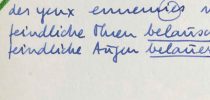 des yeux ennemis n
feindliche Ohren belausc
feindliche Augen belauer